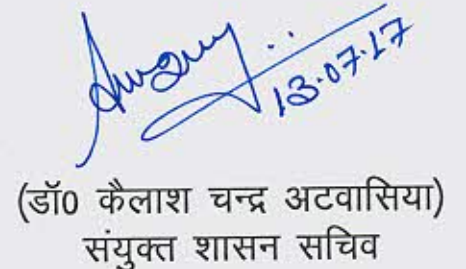 13.07.17
(डॉ0 कैलाश चन्द्र अटवासिया)
संयुक्त शासन सचिव